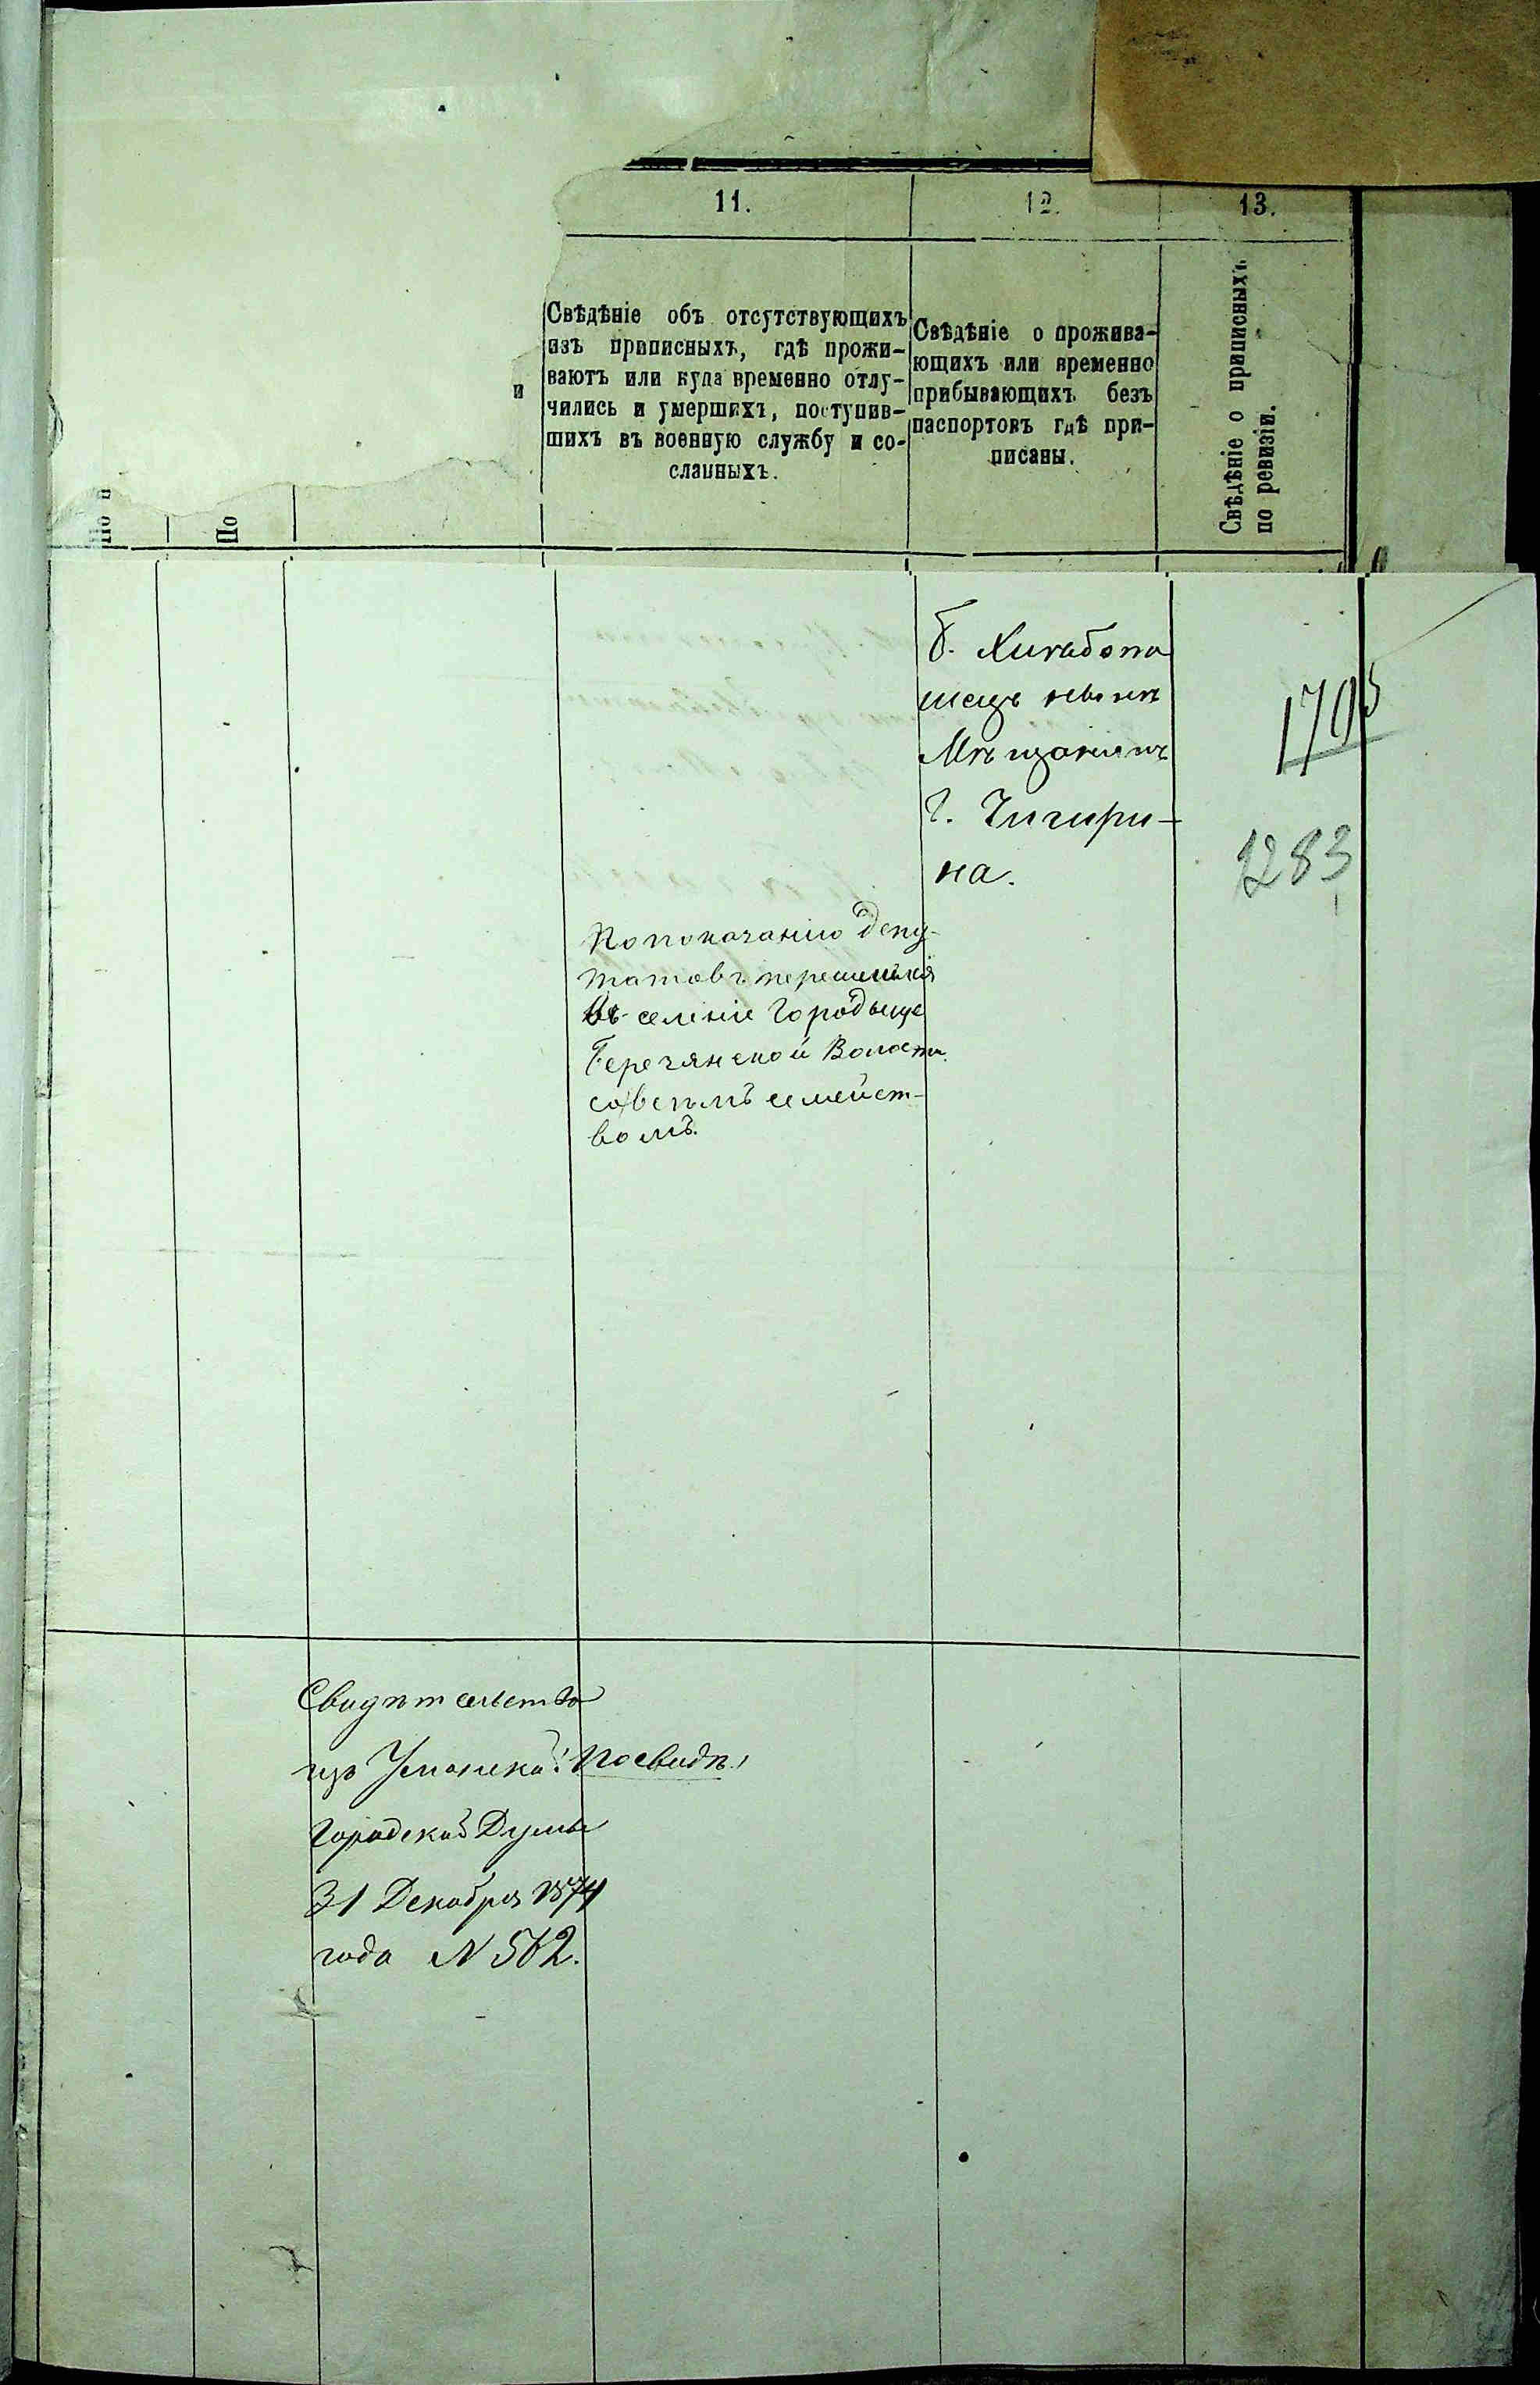 11.
12.
13.
Свѣдѣніе объ отсутствующихъ
изъ приписныхъ, гдѣ прожи-
ваютъ или куда временно отлу-
чились и умершихъ, поступив-
шихъ въ военную службу и со-
сланныхъ.
Свѣдѣніе о прожива-
ющихъ или временно
прибывающихъ безъ
паспортовъ гдѣ при-
писаны.
Свѣдѣніе о приписныхъ
по ревизіи.
и
По
По
б. Хлѣбопа
шецъ нынѣ
Мѣщанинъ
г. Чигири-
на.
1705
1283
По показанію депу-
татовъ перешился
въ селеніе Городыще
Березянской Волости
со всѣмъ семейст-
вомъ.
Свидѣтельство
изъ Уманской
По свидѣ.
Городской Думы
31 Декабря 1874
года N 562.